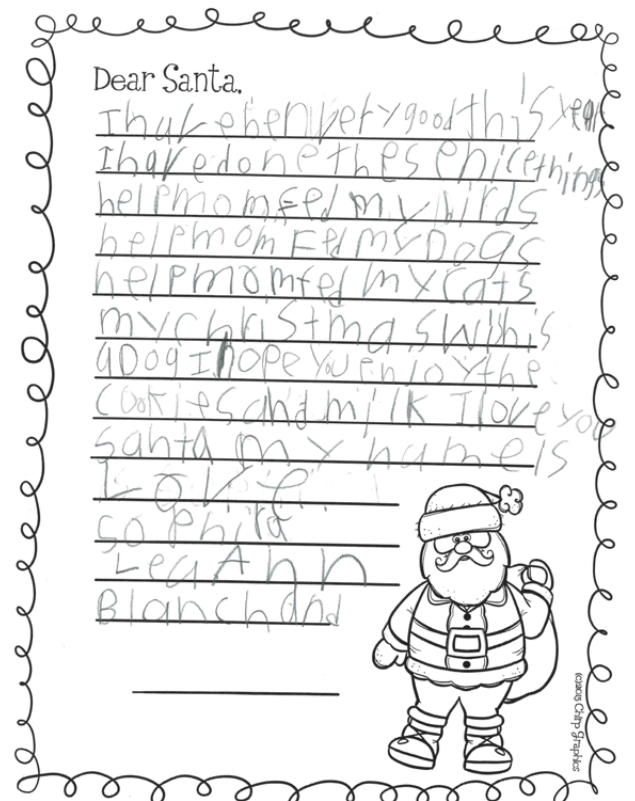 Dear Santa,
I have ben very good this year
I have done these nice things
help mom fed my birds
help mom Fed my Dogs
help mom fed my cats
my christmas wish is
a Dog I hope you enjoy the
cookies and milk I love you
santa my name is
Love
sophira
LeaAnn
Blanchand
(c)2015 Chirp Graphics